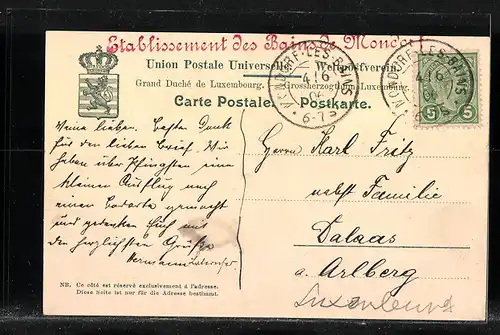 Etablissement des Bains de Mondorf
Union Postale Universelle. Weltpostverein.
Grand Duché de Luxembourg. Grossherzogthum Luxemburg.
Carte Postale. Postkarte.
MONDORF-LES-BAINS
4/6
6-7S
MONDORF-LES-BAINS
5 5
Meine Lieben. Besten Dank
für den lieben Brief. Wir
haben über Pfingsten eine
kleinen Ausflug nach
einem Badeorte gemacht
und gedenken Euch mit
den herzlichsten Grüße
Hermann
Herrn Karl Fritz
nebst Familie
Dalaas
a. Arlberg
Luxemburg
NB. Ce côté est réservé exclusivement à l'adresse.
Diese Seite ist nur für die Adresse bestimmt.